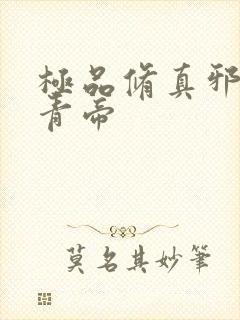 極品脩真邪
青帝
莫名其妙筆